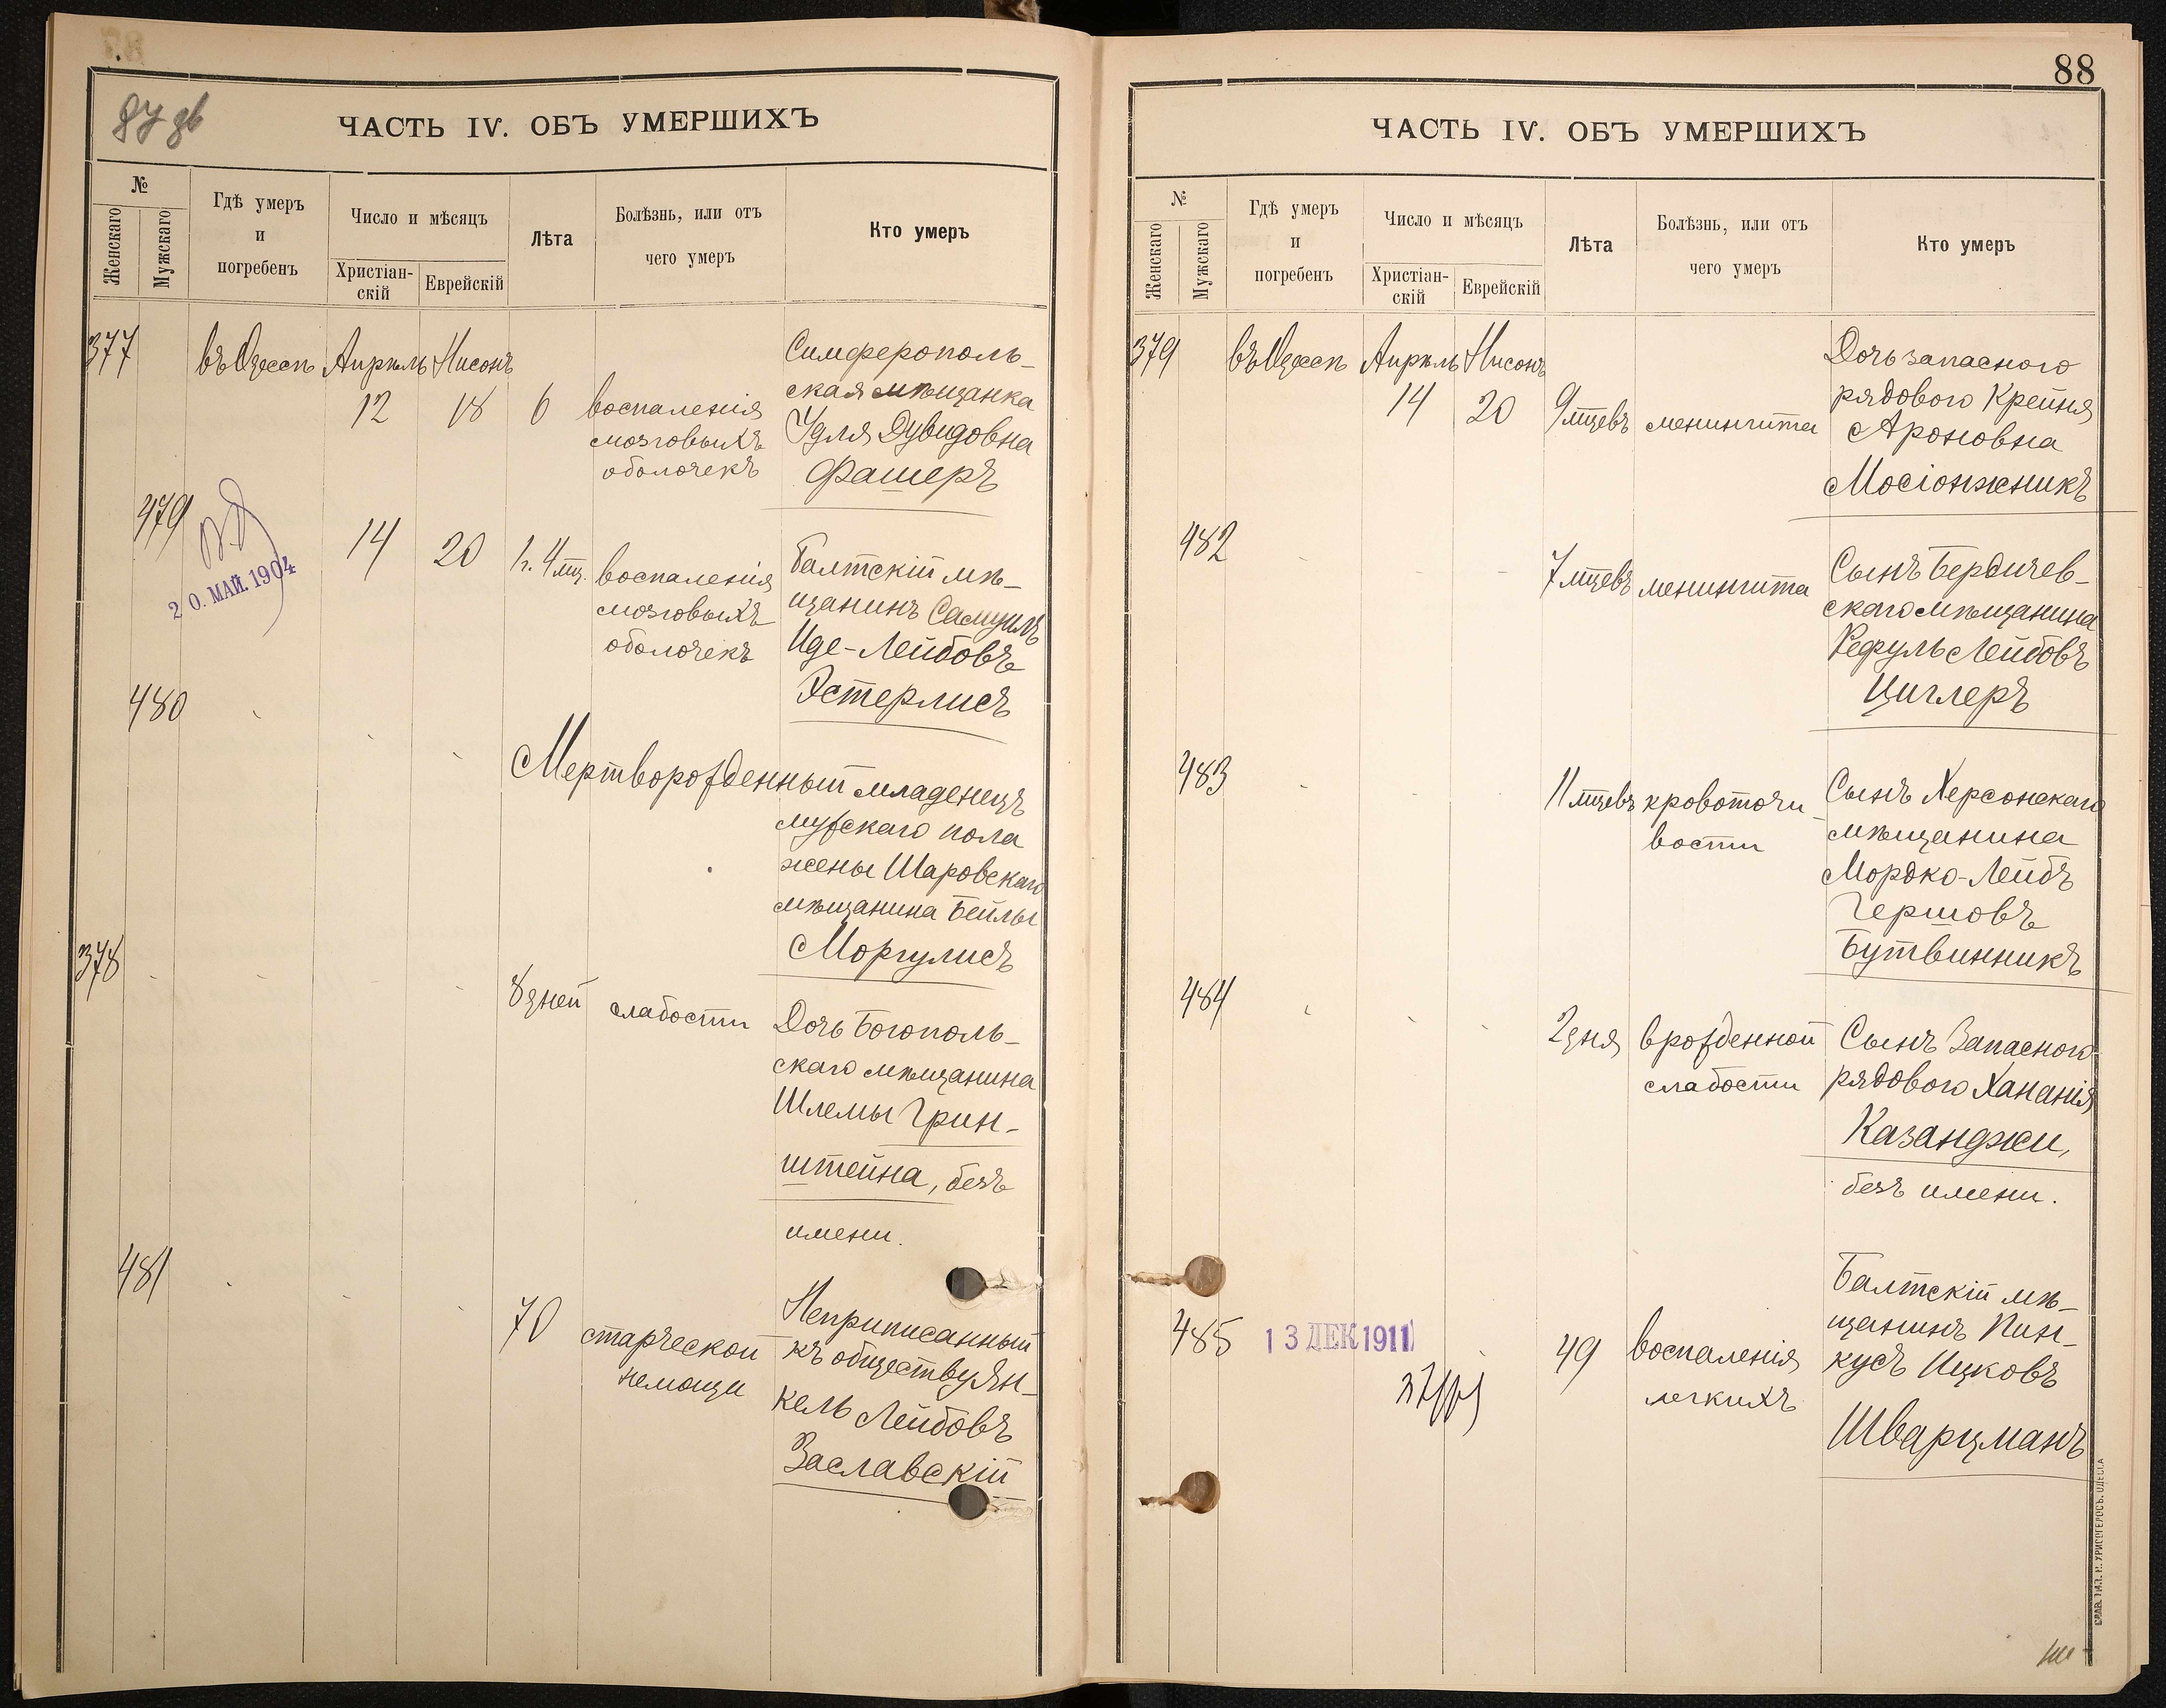 ЧАСТЬ IV. ОБЪ УМЕРШИХЪ
№
Женскаго
Мужскаго
Гдѣ умеръ
и
погребенъ
Число и мѣсяцъ
Христіан-
скій
Еврейскій
Лѣта
Болѣзнь, или отъ
чего умеръ
Кто умеръ
377
въ Одессѣ
Апрѣль
Нисонъ
12
18
6
воспаленія
мозговыхъ
оболочекъ
Симферополь-
ская мѣщанка
Удля Дувидовна
Фашеръ
479
20. МАЙ. 1904
14
20
1 г. 4 мц.
воспаленія
мозговыхъ
оболочекъ
Балтскій мѣ-
щанинъ Самуилъ
Иде-Лейбовъ
Эстерлисъ
480
Мертворожденный младенецъ
мужскаго пола
жены Шаровскаго
мѣщанина Бейлы
Моргулисъ
378
8 дней
слабости
Дочь Богополь-
скаго мѣщанина
Шлемы Грин-
штейна, безъ
имени.
481
70
старческой
немощи
Неприписанный
къ обществу Ян-
кель Лейбовъ
Заславскій
88
ЧАСТЬ IV. ОБЪ УМЕРШИХЪ
№
Женскаго
Мужскаго
Гдѣ умеръ
и
погребенъ
Число и мѣсяцъ
Христіан-
скій
Еврейскій
Лѣта
Болѣзнь, или отъ
чего умеръ
Кто умеръ
379
въ Одессѣ
Апрѣль
Нисонъ
14
20
9 мцевъ
менингита
Дочь запасного
рядового Крейня
Ароновна
Мосіонжникъ
482
7 мцевъ
менингита
Сынъ Бердичев-
скаго мѣщанина
Рефуль Лейбовъ
Циглеръ
483
11 мцевъ
кровоточи-
вости
Сынъ Херсонскаго
мѣщанина
Мордко-Лейбъ
Гершовъ
Бутвинникъ
484
2 дня
врожденной
слабости
Сынъ Запасного
рядового Ханания
Казанджи,
безъ имени.
485
13 ДЕК 1911
49
воспаленія
легкихъ
Балтскій мѣ-
щанинъ Пин-
кусъ Ицковъ
Шварцманъ